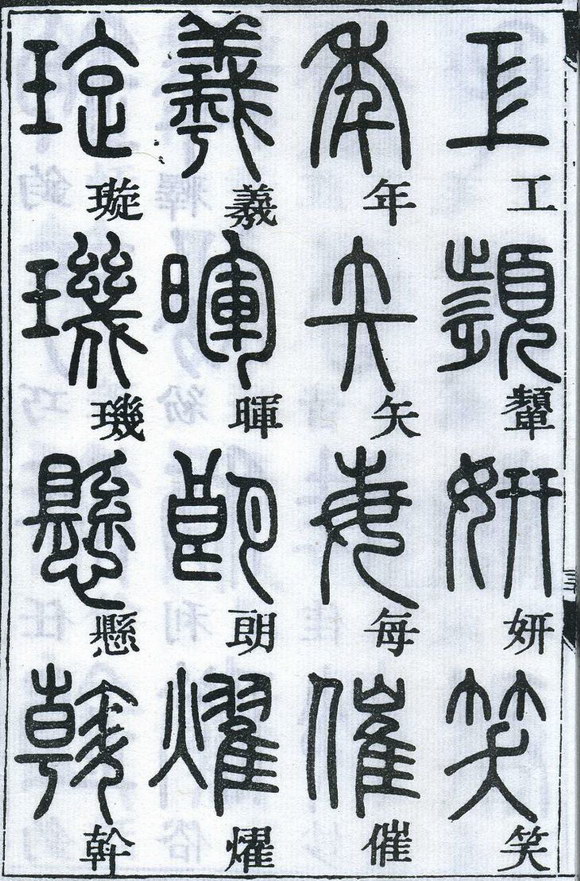 工顰妍笑
年矢每催
羲暉朗燿
璇璣懸幹